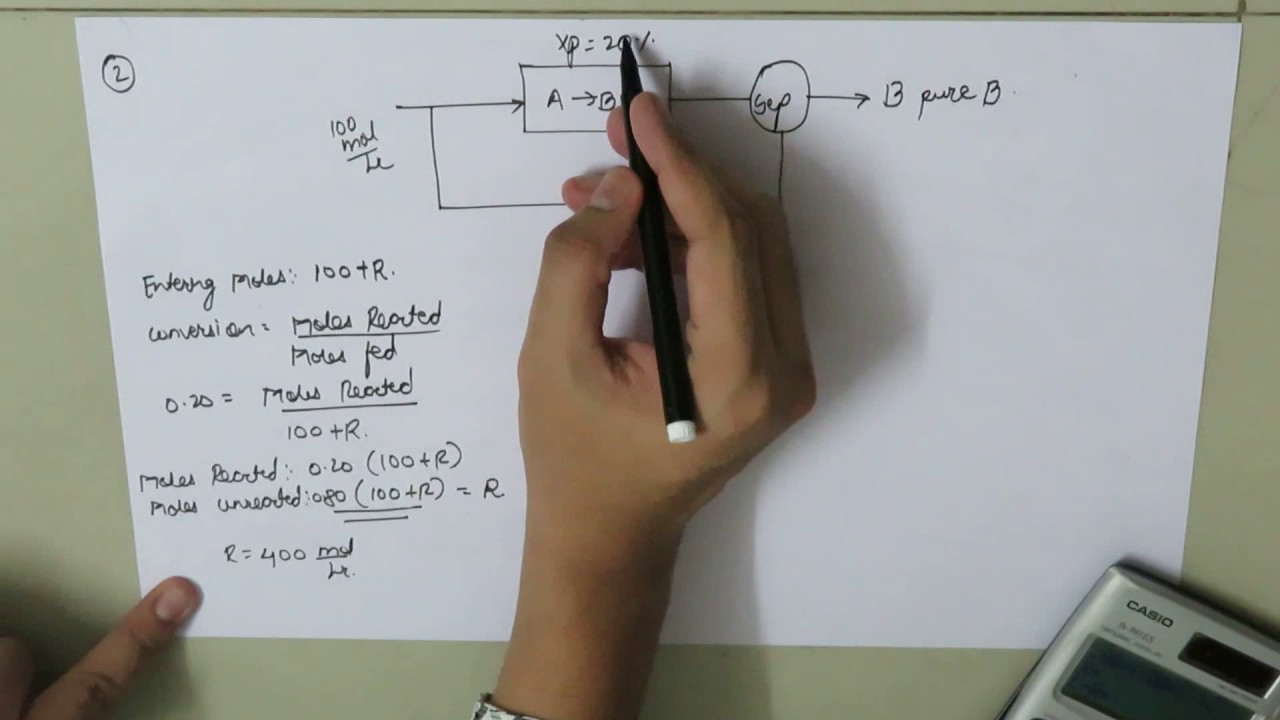 2
Xp = 20%
A → B
Sep
B pure B.
100 mol/hr
Entering moles: 100+R.
conversion = Moles Reacted / Moles fed
0.20 = Moles Reacted / 100+R.
Moles Reacted: 0.20 (100+R)
Moles unreacted: 0.80 (100+R) = R
R = 400 mol/hr.
CASIO